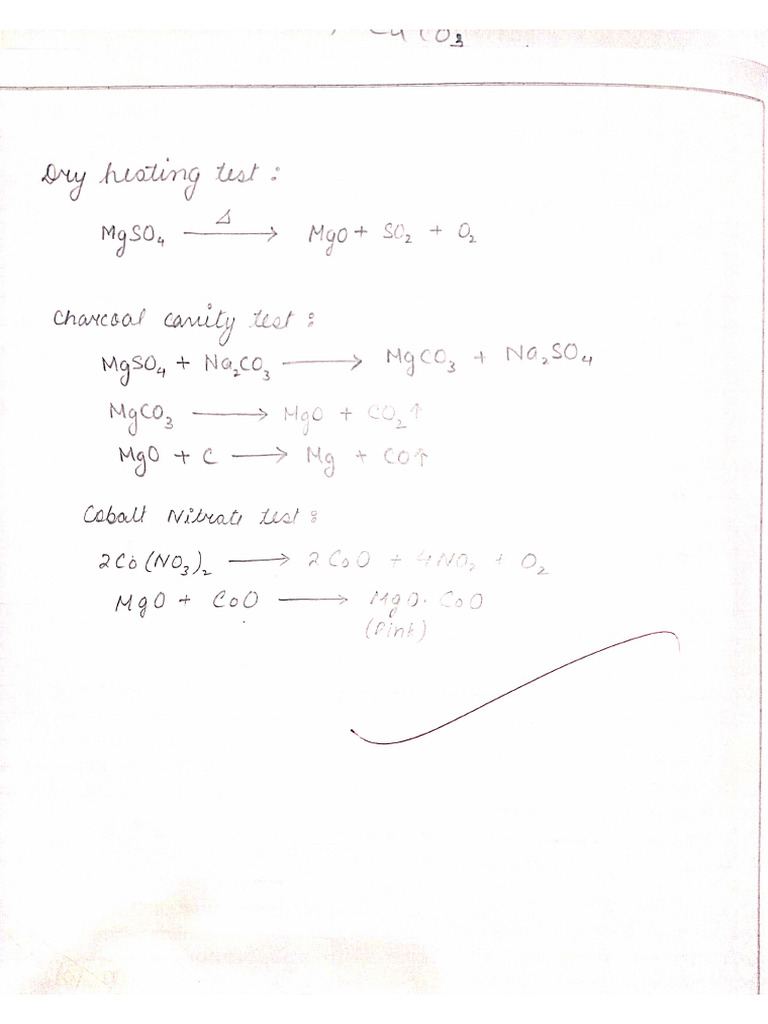 Dry heating test :
Δ
MgSO₄ ⟶ MgO + SO₂ + O₂
Charcoal cavity test :
MgSO₄ + Na₂CO₃ ⟶ MgCO₃ + Na₂SO₄
MgCO₃ ⟶ MgO + CO₂↑
MgO + C ⟶ Mg + CO↑
Cobalt Nitrate test :
2Co(NO₃)₂ ⟶ 2CoO + 4NO₂ + O₂
MgO + CoO ⟶ MgO·CoO
(Pink)